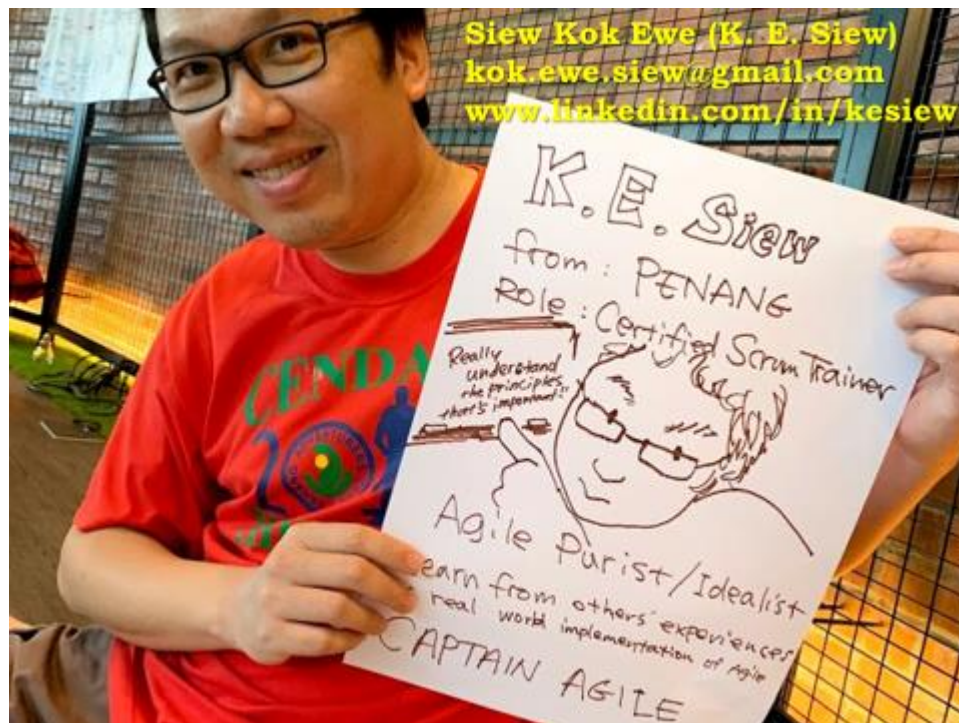 Siew Kok Ewe (K. E. Siew)
kok.ewe.siew@gmail.com
www.linkedin.com/in/kesiew
K. E. Siew
from : PENANG
Role : Certified Scrum Trainer
Really
understand
the principles,
that's important!!
Agile Purist/Idealist
earn from others' experiences
real world implementation of Agile
CAPTAIN AGILE
CENDA